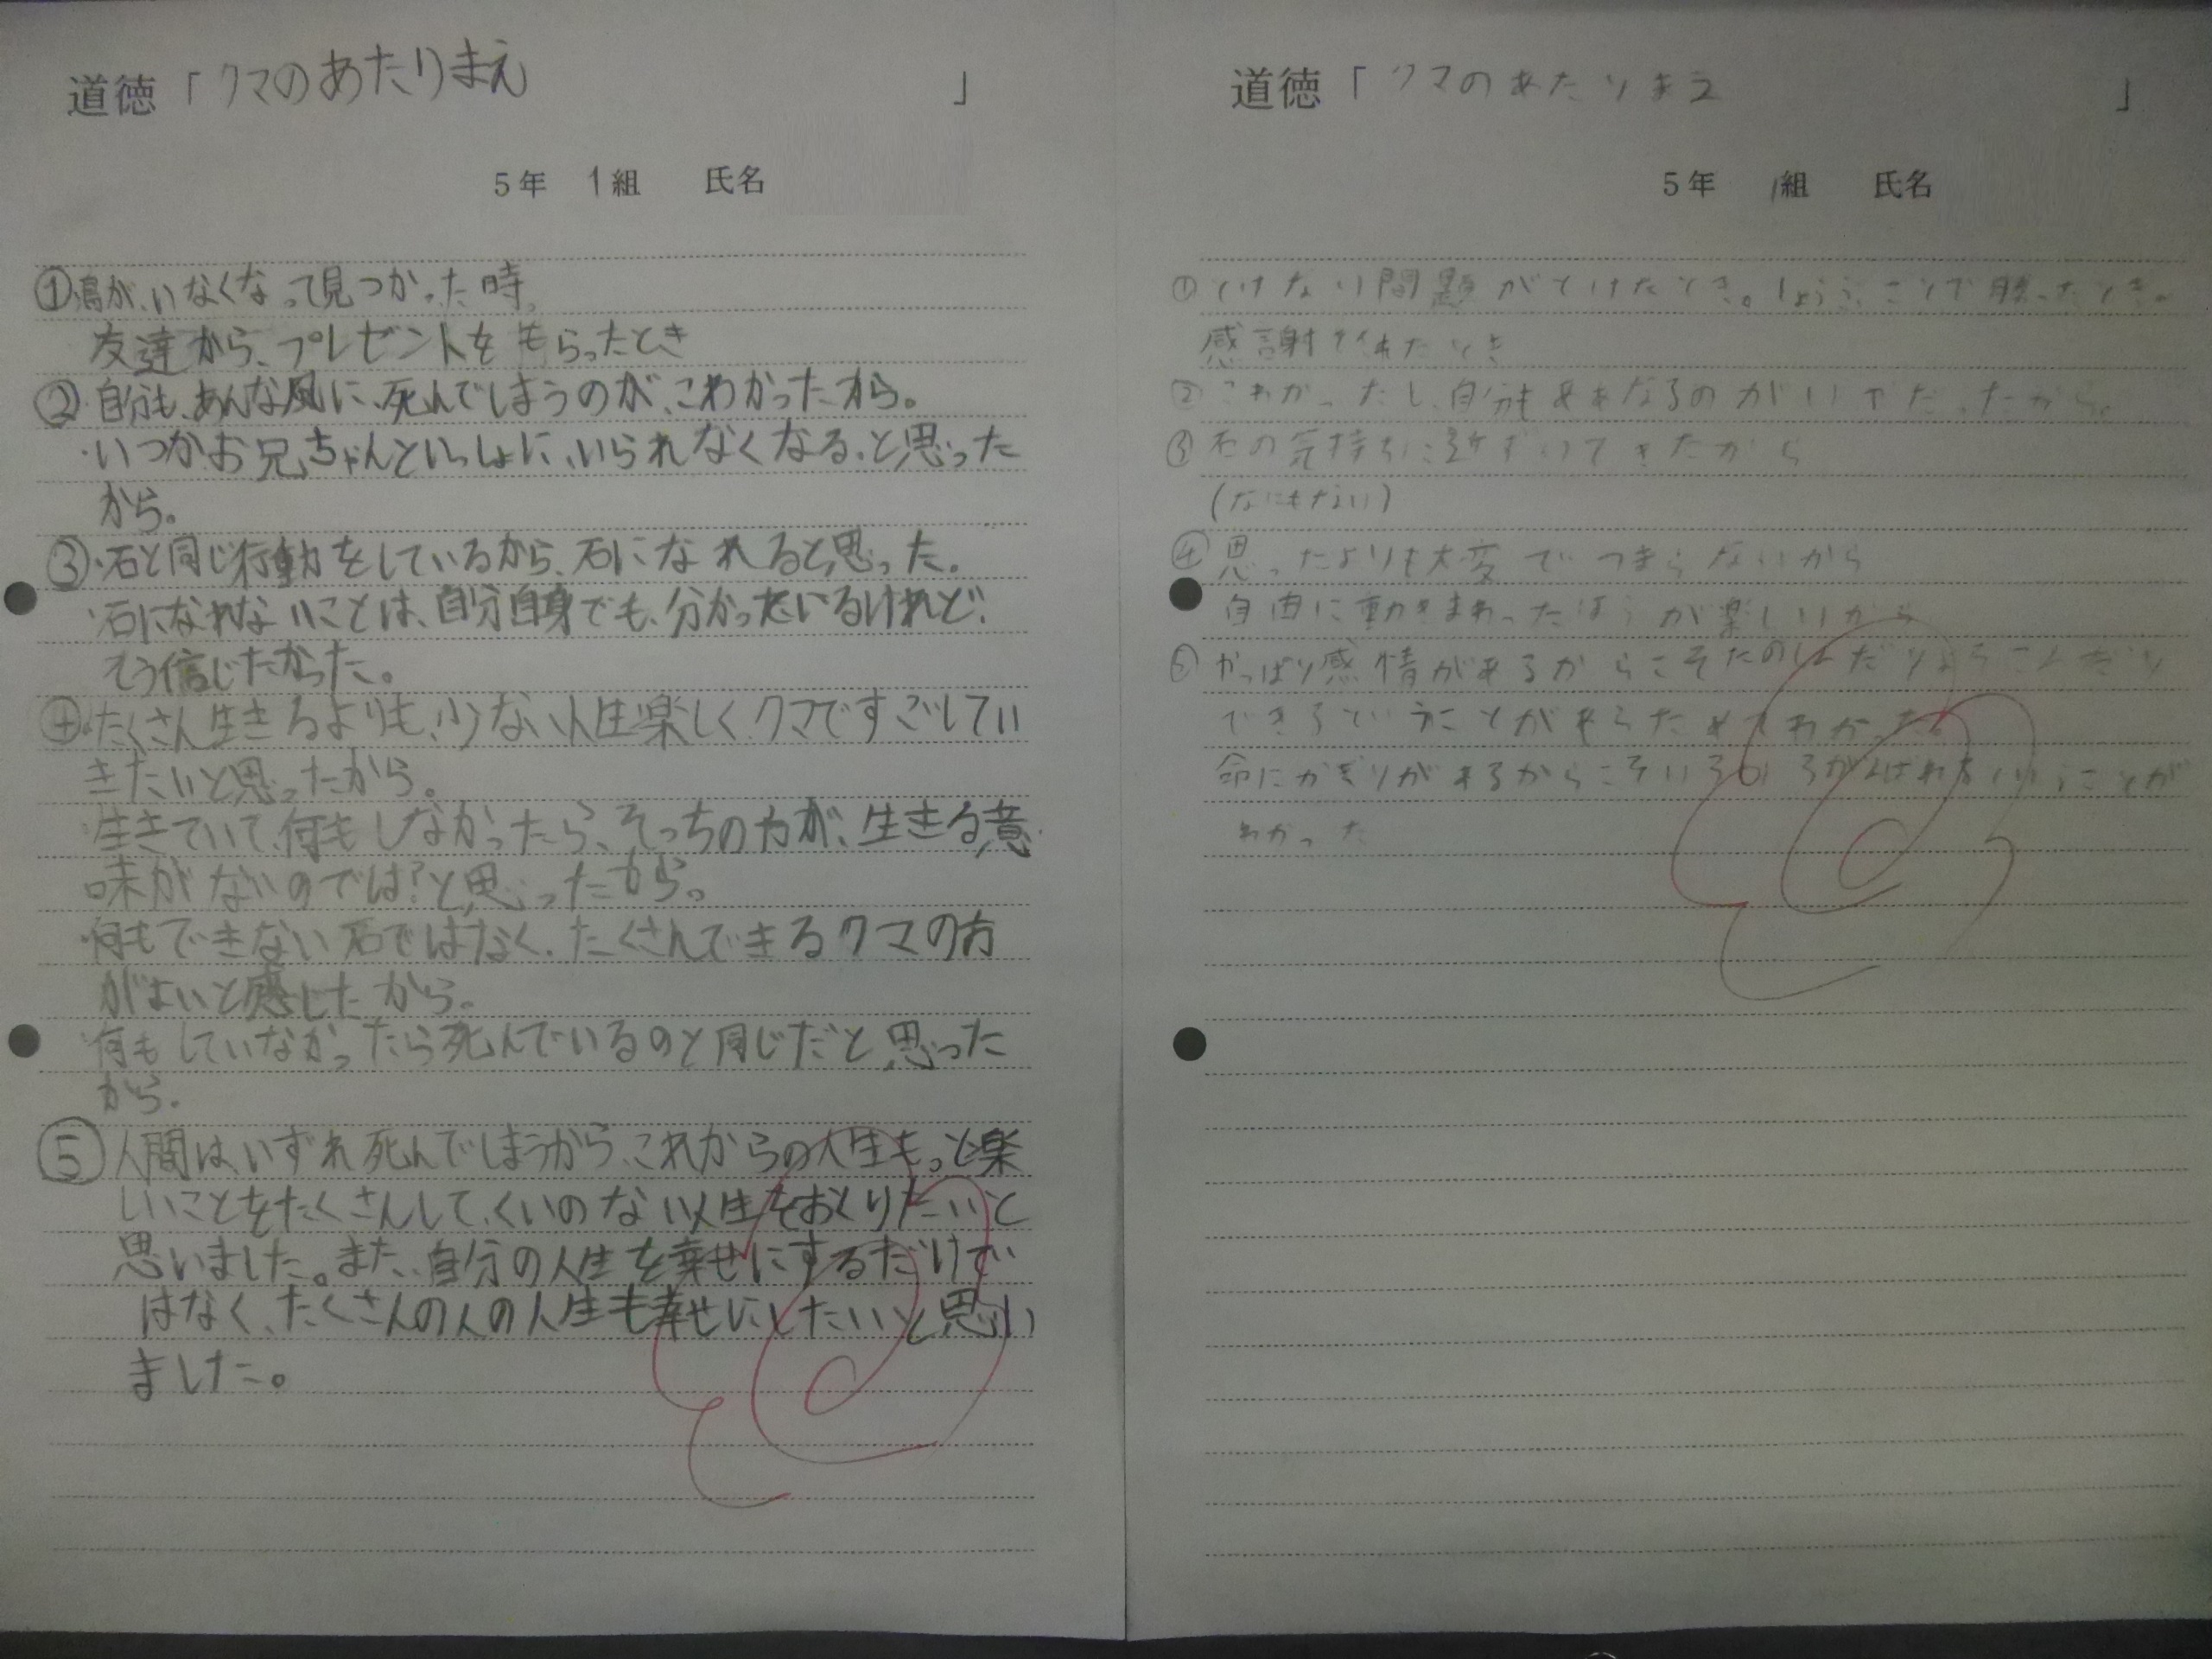 道徳「クマのあたりまえ」
5年 1組 氏名
①鳥が、いなくなって見つかった時。
友達から、プレゼントをもらったとき
②・自分も、あんな風に、死んでしまうのが、こわかったから。
・いつかお兄ちゃんといっしょに、いられなくなる、と思った
から。
③・石と同じ行動をしているから、石になれると思った。
・石になれないことは、自分自身でも、分かっているけれど、
そう信じたかった。
④・たくさん生きるよりも、少ない人生楽しく、クマですごしてい
きたいと思ったから。
・生きていて、何もしなかったら、そっちの方が、生きる意
味がないのでは?と思ったから。
・何もできない石ではなく、たくさんできるクマの方
がよいと感じたから。
・何もしていなかったら死んでいるのと同じだと思った
から。
⑤人間は、いずれ死んでしまうから、これからの人生もっと楽
しいことをたくさんして、くいのない人生をおくりたいと
思いました。また、自分の人生を幸せにするだけで
はなく、たくさんの人の人生も幸せにしたいと思い
ました。
道徳「クマのあたりまえ」
5年 1組 氏名
①とけない問題がとけたとき。しょうぶごとで勝ったとき。
感謝されたとき
②こわかったし、自分もああなるのがいやだったから。
③石の気持ちに近ずいてきたから
(なにもない)
④思ったよりも大変でつまらないから
自由に動きまわったほうが楽しいから
⑤やっぱり感情があるからこそたのしんだりよろこんだり
できるということがあらためてわかった。
命にかぎりがあるからこそいろいろがんばれるということが
わかった